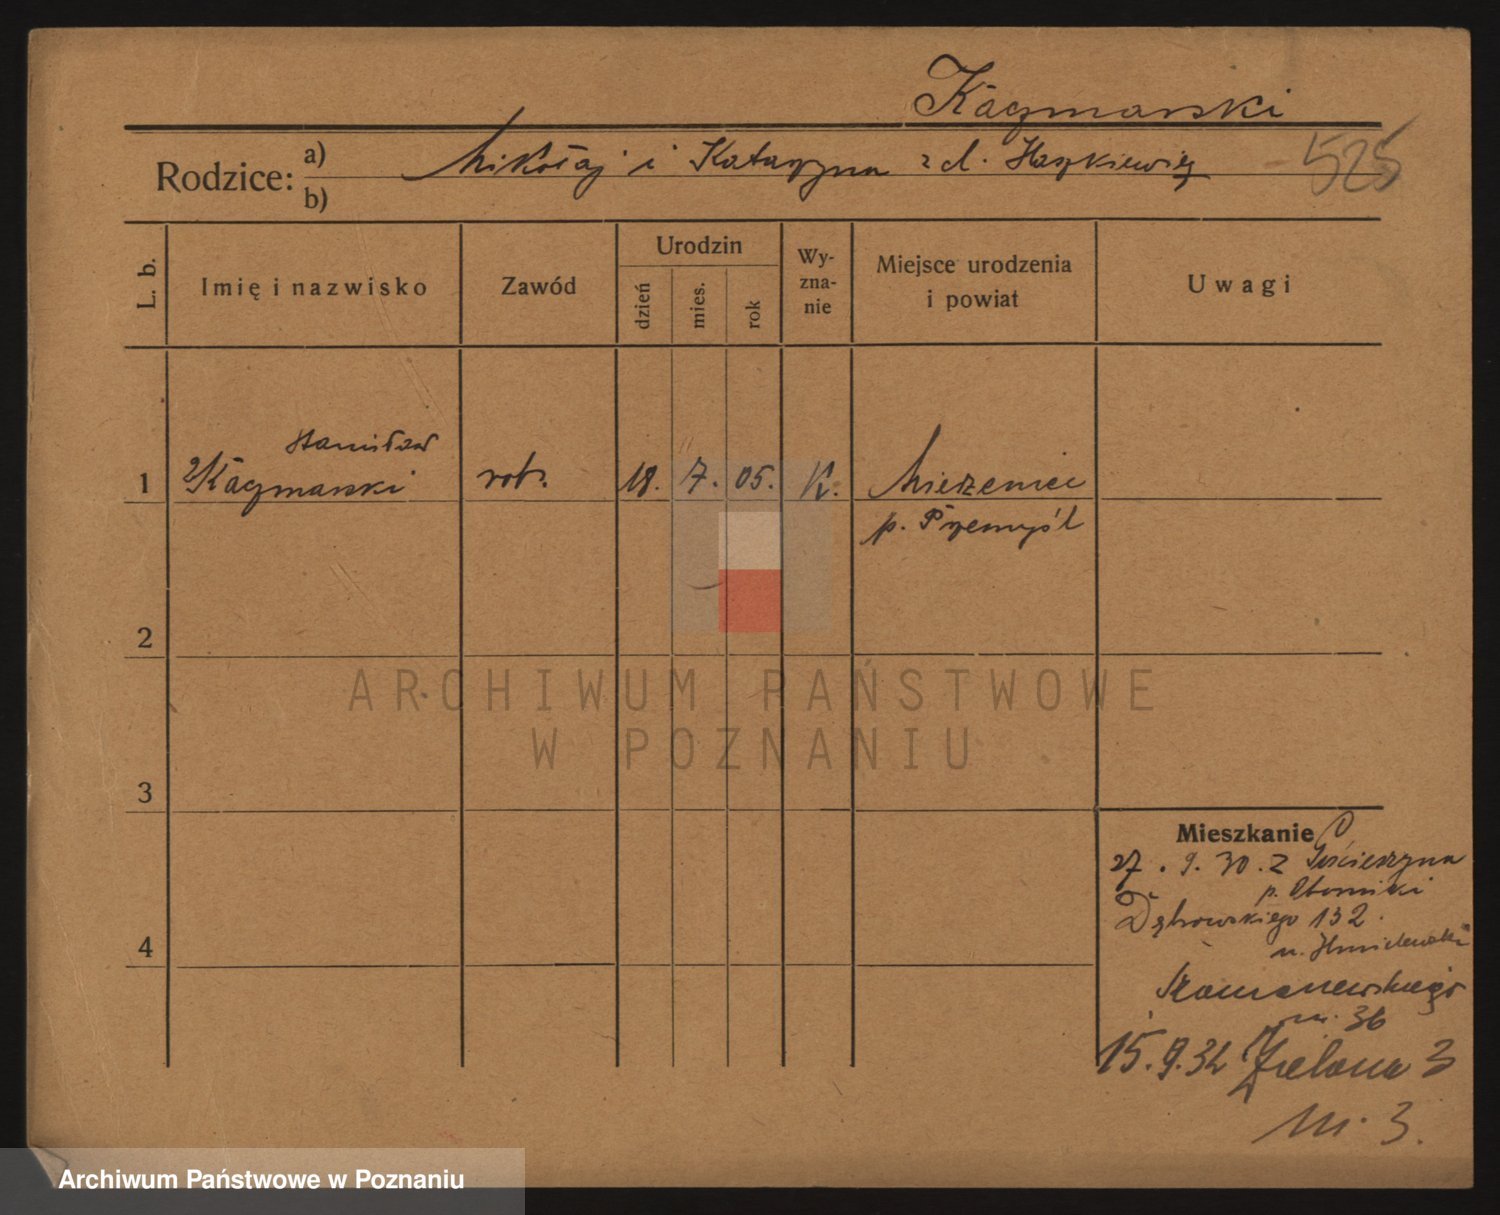 Kaczmarski
Rodzice: a) Mikołaj i Katarzyna z d. Haszkiewicz 525
b)
L. b. Imię i nazwisko Zawód Urodzin dzień mies. rok Wyznanie Miejsce urodzenia i powiat Uwagi
Stanisław
1 Kaczmarski rob. 18. 7. 05. K.
p. Przemyśl
2
3
4
Mieszkanie
27. 9. 30. z Gościeszyna
Dąbrowskiego 132.
m. 36
15.9.32 Zielona 3
m. 3.
ARCHIWUM PAŃSTWOWE
W POZNANIU
Archiwum Państwowe w Poznaniu